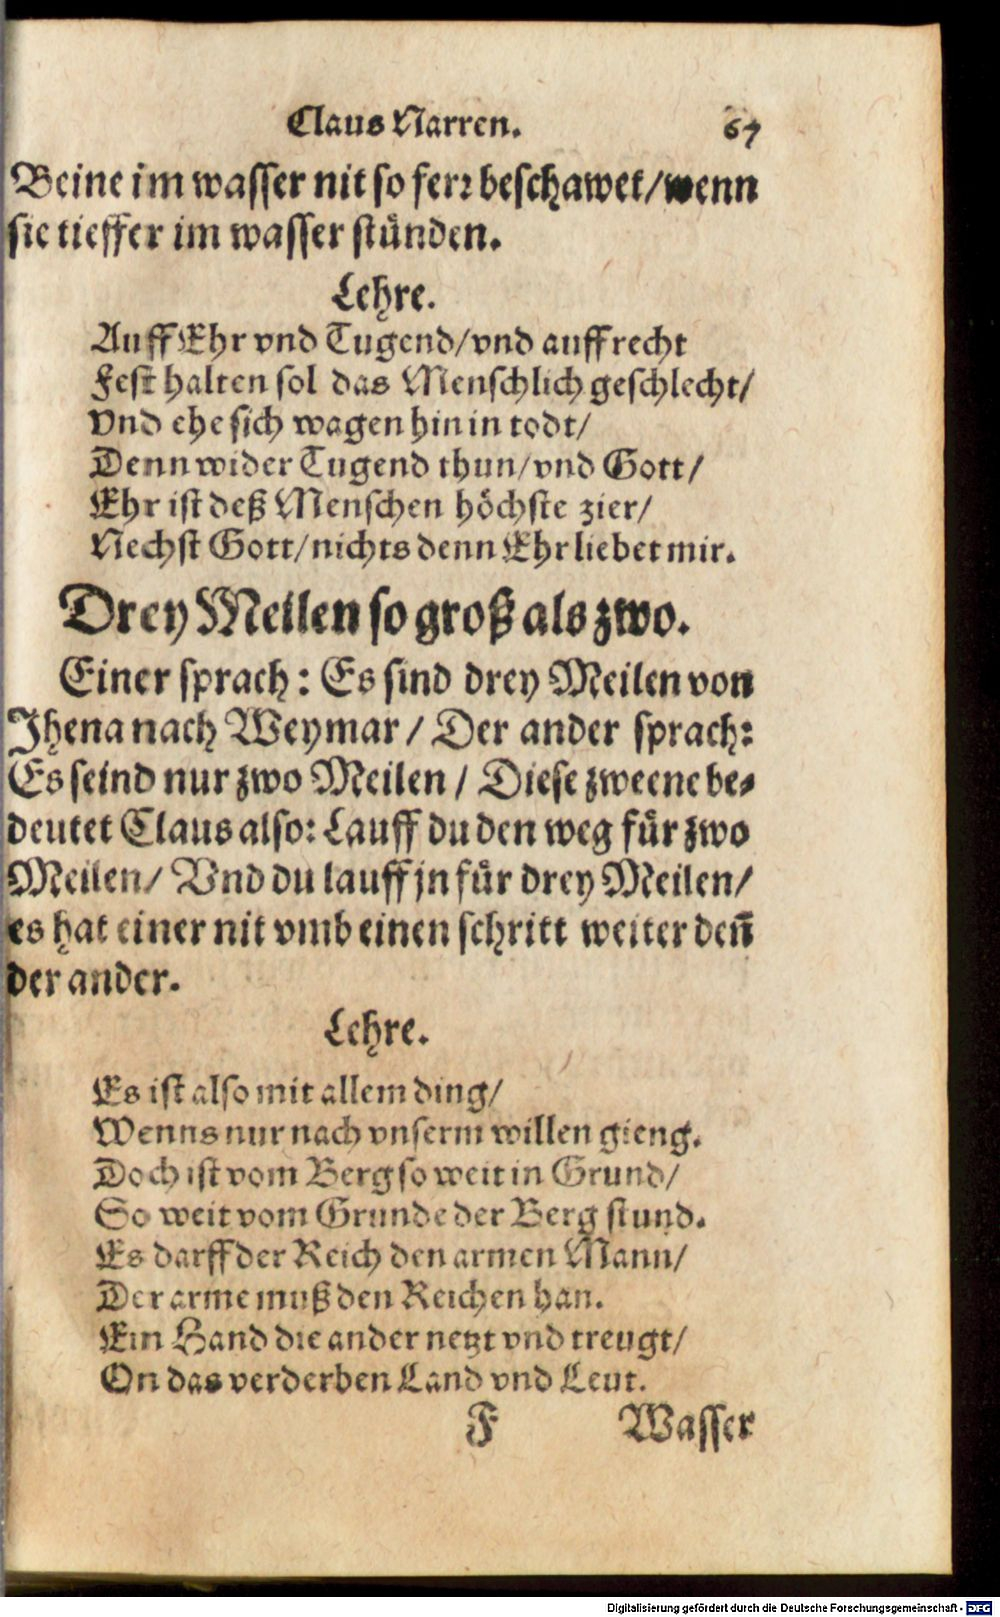 Claus Narren. 67
Beine im wasser nit so ferꝛ beschawet/wenn
sie tieffer im wasser stünden.
Lehre.
Auff Ehr vnd Tugend/vnd auffrecht
Fest halten sol das Menschlich geschlecht/
Vnd ehe sich wagen hin in todt/
Denn wider Tugend thun/vnd Gott/
Ehr ist deß Menschen höchste zier/
Nechst Gott/nichts denn Ehr liebet mir.
Drey Meilen so groß als zwo.
Einer sprach: Es sind drey Meilen von
Jhena nach Weymar/ Der ander sprach:
Es seind nur zwo Meilen/ Diese zweene be-
deutet Claus also: Lauff du den weg für zwo
Meilen/ Vnd du lauff jn für drey Meilen/
es hat einer nit vmb einen schritt weiter deñ
der ander.
Lehre.
Es ist also mit allem ding/
Wenns nur nach vnserm willen gieng.
Doch ist vom Berg so weit in Grund/
So weit vom Grunde der Berg stund.
Es darff der Reich den armen Mann/
Der arme muß den Reichen han.
Ein Hand die ander netzt vnd treugt/
On das verderben Land vnd Leut.
F Wasser
Digitalisierung gefördert durch die Deutsche Forschungsgemeinschaft - DFG